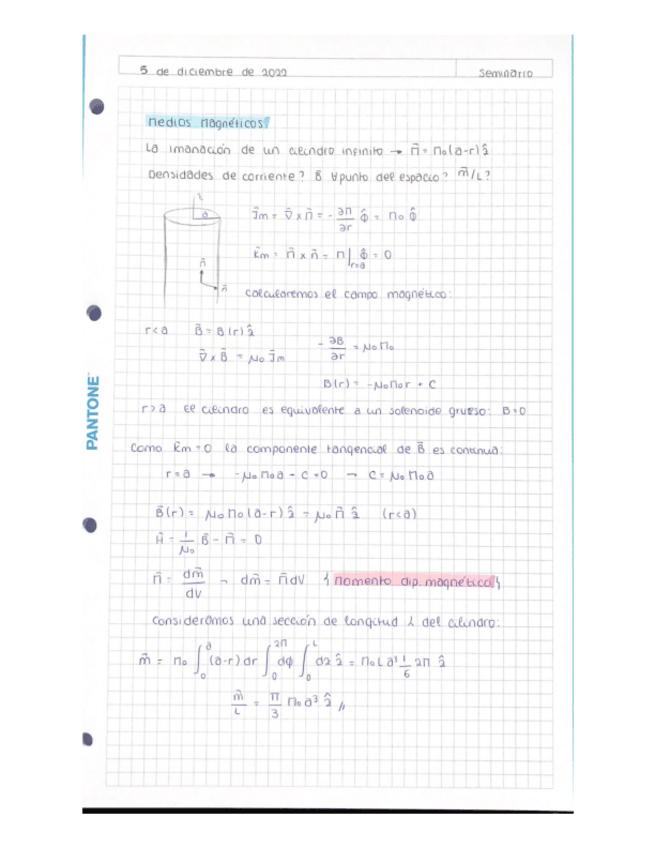 5 de diciembre de 2022
Seminario
Medios Magnéticos
La imanación de un cilindro infinito → M⃗ = M₀(a-r) ẑ
Densidades de corriente? B⃗ ∀punto del espacio? m⃗/L?
a
J⃗m = ∇⃗ x M⃗ = - ∂M/∂r ϕ̂ = M₀ ϕ̂
K⃗m = M⃗ x n⃗ = M|r=a ϕ̂ = 0
M⃗
n⃗
Calcularemos el campo magnético:
r<a B⃗ = B(r) ẑ
- ∂B/∂r = μ₀M₀
∇⃗ x B⃗ = μ₀ J⃗m
B(r) = -μ₀M₀r + C
r>a El cilindro es equivalente a un solenoide grueso: B=0
PANTONE
Como K⃗m = 0 la componente tangencial de B⃗ es continua:
r=a → -μ₀M₀a - C = 0 → C = μ₀M₀a
B⃗(r) = μ₀M₀(a-r) ẑ = μ₀ M⃗ ẑ (r<a)
H⃗ = 1/μ₀ B⃗ - M⃗ = 0
M⃗ = dm⃗/dV → dm⃗ = M⃗dV { Momento dip. magnético }
Consideramos una sección de longitud L del cilindro:
m⃗ = M₀ ∫₀ᵃ (a-r) dr ∫₀²π dϕ ∫₀ᴸ dz ẑ = M₀ L a³ 1/6 2π ẑ
m⃗/L = π/3 M₀ a³ ẑ //